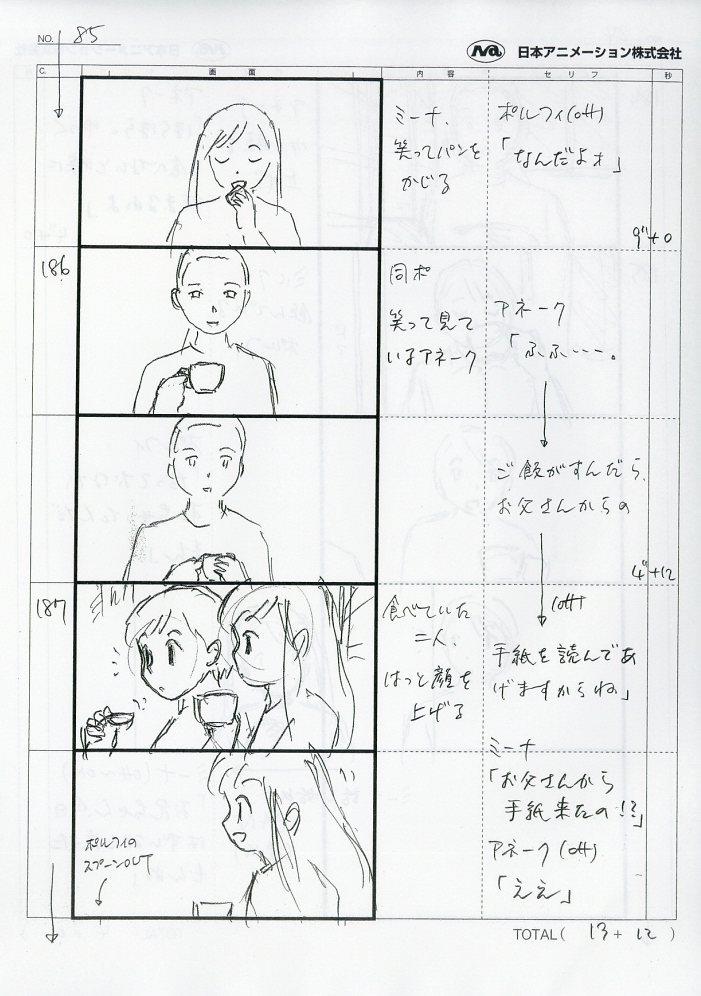 NO. 85
日本アニメーション株式会社
C. 画面 内容 セリフ 秒
ミーナ、
笑ってパンを
かじる
ポルフィ(off)
「なんだよォ」
9"+0
186
同ポ
笑って見て
いるアネーク
アネーク
「ふふ----。
ご飯がすんだら、
お父さんからの
4"+12
187
食べていた
二人、
はっと顔を
上げる
(off)
手紙を読んであ
げますからね」
ポルフィの
スプーンOUT
ミーナ
「お父さんから
手紙来たの!?」
アネーク(off)
「ええ」
TOTAL( 13 + 12 )